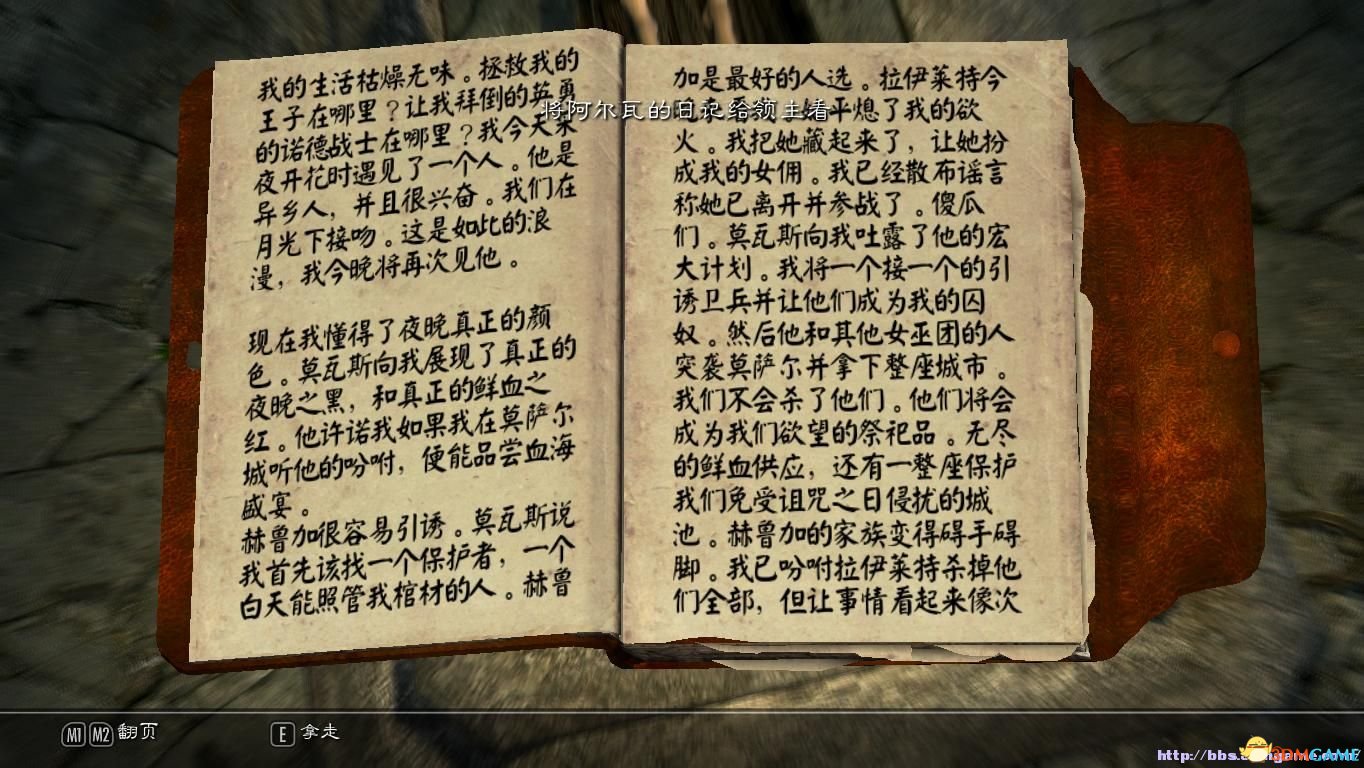 我的生活枯燥无味。拯救我的
王子在哪里？让我拜倒的英勇
的诺德战士在哪里？我今天采
夜开花时遇见了一个人。他是
异乡人，并且很兴奋。我们在
月光下接吻。这是如此的浪
漫，我今晚将再次见他。
现在我懂得了夜晚真正的颜
色。莫瓦斯向我展现了真正的
夜晚之黑，和真正的鲜血之
红。他许诺我如果我在莫萨尔
城听他的吩咐，便能品尝血海
盛宴。
赫鲁加很容易引诱。莫瓦斯说
我首先该找一个保护者，一个
白天能照管我棺材的人。赫鲁
加是最好的人选。拉伊莱特今
将阿尔瓦的日记给领主看
平熄了我的欲
火。我把她藏起来了，让她扮
成我的女佣。我已经散布谣言
称她已离开并参战了。傻瓜
们。莫瓦斯向我吐露了他的宏
大计划。我将一个接一个的引
诱卫兵并让他们成为我的囚
奴。然后他和其他女巫团的人
突袭莫萨尔并拿下整座城市。
我们不会杀了他们。他们将会
成为我们欲望的祭祀品。无尽
的鲜血供应，还有一整座保护
我们免受诅咒之日侵扰的城
池。赫鲁加的家族变得碍手碍
脚。我已吩咐拉伊莱特杀掉他
们全部，但让事情看起来像次
M1 M2 翻页
E 拿走
http://bbs.3dmgame.com/
3DMGAME